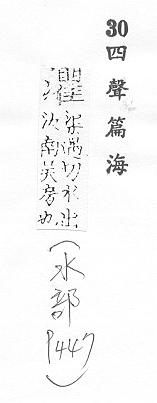 30四聲篇海
灈渠遇切水出
汝南吴房也
(水部
P447)